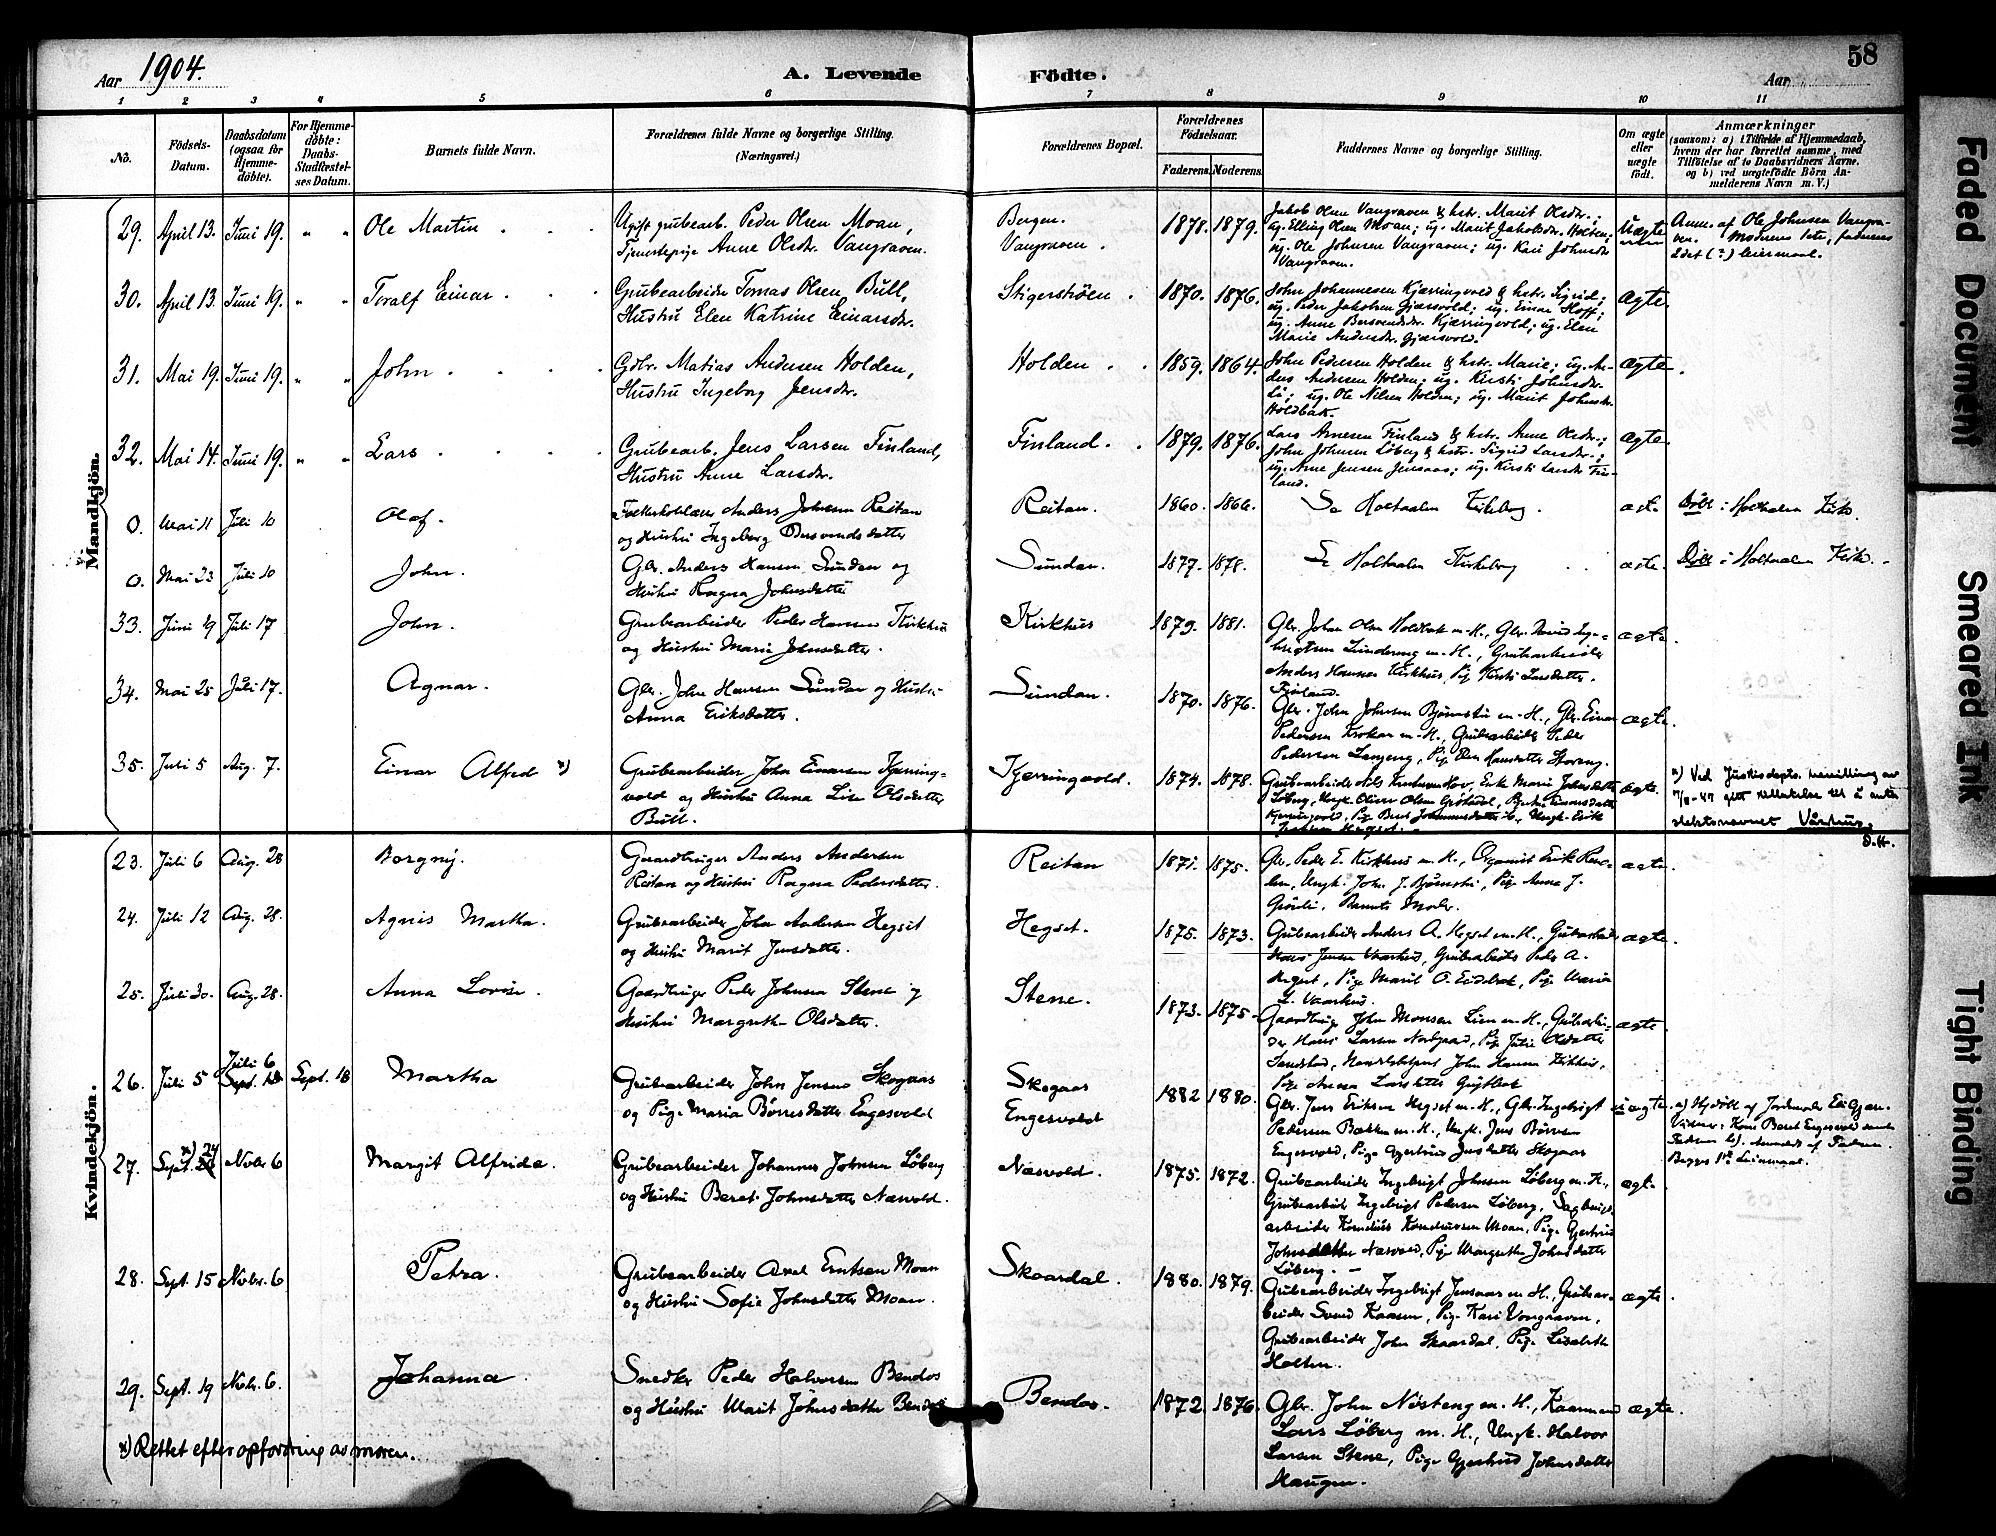 Aar 1904.
A. Levende Födte.
Aar
58
1 2 3 4 5 6 7 8 9 10 11
No.
Födsels-Datum.
Daabsdatum (ogsaa for Hjemme-döbte).
For Hjemme-döbte: Daabs-Stadfæstel-ses Datum.
Barnets fulde Navn.
Forældrenes fulde Navne og borgerlige Stilling. (Næringsvei.)
Forældrenes Bopæl.
Forældrenes Födselsaar.
Faderens. Moderens.
Faddernes Navne og borgerlige Stilling.
Om ægte eller uægte födt.
Anmærkninger
(saasom: a) i Tilfælde af Hjemmedaab,
hvem der har forrettet samme, med
Tilföielse af to Daabsvidners Navne.
og b) ved uægtefödte Börn An-
melderens Navn m. V.)
Mandkjön.
29. April 13. Juni 19. " " Ole Martin
Ugift grubearb. Peder Olsen Moan,
Tjenestepige Anne Olsdr. Vangraven.
Bergen.
Vangraven.
1878. 1879.
Jakob Olsen Vangraven & hstr. Marit Olsdr.;
ug. Elling Olsen Moan; ug. Marit Jakobsdr. Holten;
ug. Ole Johnsen Vangraven; ug. Kari Johnsdr.
Vangraven.
Uægte
Anm. af Ole Johnsen Vangra-
ven. Moderens 1ste, faderens
2det (?) leiermaal.
30. April 13. Juni 19. " " Toralf Einar
Grubearbeider Tomas Olsen Bull,
Hustru Elen Katrine Einarsdr.
Stigerstrøen.
1870. 1876.
John Johannesen Kjærringvold & hstr. Sigrid;
ug. Peder Jakobsen Gjærsvold; ug. Einar Hoff;
ug. Anne Bersvendsdr. Kjærringvold; ug. Elen
Marie Andersdr. Gjærsvold.
Ægte.
31. Mai 19. Juni 19. " " John
Gdbr. Matias Andersen Holden,
Hustru Ingeborg Jensdr.
Holden
1859. 1864.
John Pedersen Holden & hstr. Marie; ug. An-
ders Andersen Holden; ug. Kirsti Johnsdr.
Li; ug. Ole Nilsen Holden; ug. Marit Johnsdr.
Holdbak.
Ægte.
32. Mai 14. Juni 19. " " Lars
Grubearb. Jens Larsen Finland,
Hustru Anne Larsdr.
Finland.
1879. 1876.
Lars Arnesen Finland & hstr. Anne Olsdr.;
John Johnsen Løberg & hstr. Sigrid Larsdr.;
ug. Arne Jensen Jensaas; ug. Kirsti Larsdr. Fin-
land.
Ægte.
0. Mai 11 Juli 10 Olaf.
Anders Johnsen Reitan
og Hustru Ingeborg Bersvendsdatter
Reitan.
1860. 1866.
Se Holtaalen Kirkebog.
ægte
Döbt i Holtaalen Kirke.
0. Mai 23 Juli 10 John.
Gbr. Anders Hansen Sundan og
Hustru Ragna Johnsdatter
Sundan.
1877. 1878.
Se Holtaalen Kirkebog
ægte.
Döbt i Holtaalen Kirke.
33. Juni 19 Juli 17 John.
Grubearbeider Peder Hansen Kirkhus
og Hustru Marie Johnsdatter.
Kirkhus
1879. 1881.
Gbr. John Olsen Holdbak m. H., Gbr. Inge-
brigtsen m. H., Grubearbeider
Anders Hansen Kirkhus, Pige Kirsti Larsdatter
Finland.
ægte.
34. Mai 25 Juli 17. Agnar.
Gbr. John Hansen Sundan og Hustru
Anna Eriksdatter.
Sundan.
1870. 1876.
Gbr. John Johnsen Bjørnstu m. H., Gbr. Einar
Pedersen m. H., Grubearbeider Peder
Pedersen Langeng, Pige Elen Hansdatter Storeng.
ægte.
35. Juli 5 Aug. 7. Einar Alfred x)
Grubearbeider John Einarsen Kjerring-
vold og Hustru Anna Lise Olsdatter
Bull.
Kjerringvold.
1874. 1878.
Grubearbeider Nils Knudsen Hov, Enke Marie Johnsdatter
Løberg, Ungk. Oliver Olsen
Kjerringvold, Pige Berit Ungk. Erik
ægte.
x) Ved Justisdepts. bevilling av
gitt tillatelse til å anta
slektsnavnet Vårhus.
D.H.
Kvindekjön.
23. Juli 6 Aug. 28 Borgny.
Gaardbruger Anders Andersen
Reitan og Hustru Ragna Pedersdatter.
Reitan
1871. 1875.
Gbr. Peder E. Kirkhus m. H., Organist Erik
Ungk. John J. Bjørnstu, Pige Anna J.
Barnets Moder.
ægte.
24. Juli 12 Aug. 28. Agnis Martha.
Grubearbeider John Andersen Hegset
og Hustru Marit Jensdatter.
Hegset.
1875. 1873.
Grubearbeider Anders A. Hegset m. H., Grubearbeider
Hans Jensen Vaarhus, Grubearbeider Peder A.
Hegset, Pige Marit O. Pige Maria
L. Vaarhus.
ægte.
25. Juli 30. Aug. 28. Anna Lovise.
Gaardbruger Peder Johnsen Stene og
Hustru Margrethe Olsdatter.
Stene.
1873. 1875.
Gaardbruger John Monsen Lien m. H., Grubearbei-
der Hans Larsen Nordgaard, Pige Julie Olsdatter
John Hansen Kirkhus,
Pige Anna Larsdatter
ægte.
26. Juli 5 Juli 6 Sept. 18 Sept. 18 Martha
Grubearbeider John Jensen Skogaas
og Pige Maria Børresdatter Engesvold
Skogaas
Engesvold
1882 1880.
Gbr. Jens Eriksen Hegset m. H., Gbr. Ingebrigt
Pedersen Bakken m. H., Ungk. Jens Børresen
Engesvold, Pige Gjertrud Jensdatter Skogaas
uægte.
a) Hjdöbt af Jordmoder
Vidner: Kone Beret Engesvold samt
Faderen b). Anmeldt af Faderen
Begges 1ste Leiermaal.
27. Sept. x) 24 Novbr. 6 Margit Alfrida.
Grubearbeider Johannes Johnsen Løberg
og Hustru Beret Johnsdatter Næsvold.
Næsvold.
1875. 1872.
Grubearbeider Ingebrigt Johnsen Løberg m. H.,
Grubearbeider Ingebrigt Pedersen Løberg, Sagbrugs-
arbeider Kornelius Korneliussen Moan, Pige Gjertrud
Johnsdatter Næsvold, Pige Margrethe Johnsdatter
Løberg.
ægte.
28. Sept. 15 Novbr. 6 Petra.
Grubearbeider Axel Erntsen Moan
og Hustru Sofie Johnsdatter Moan.
Skaardal.
1880. 1879.
Grubearbeider Ingebrigt Jensaas m. H., Grubear-
beider Svend Kaasen, Pige Kari Vangraven,
Grubearbeider John Skaardal, Pige Lisabeth
Holten.
ægte.
29. Sept. 19 Novbr. 6. Johanna
Snedker Peder Halvorsen Bendos
og Hustru Marit Johnsdatter Bendos
Bendos.
1872 1876.
Gbr. John Nösteng m. H., Kaarmand
Lars Løberg m. H., Ungk. Halvor
Larsen Stene, Pige Gjertrud Johnsdatter
Haugen.
ægte.
x) Rettet efter opfordring av moren.
Faded Document
Smeared Ink
Tight Binding